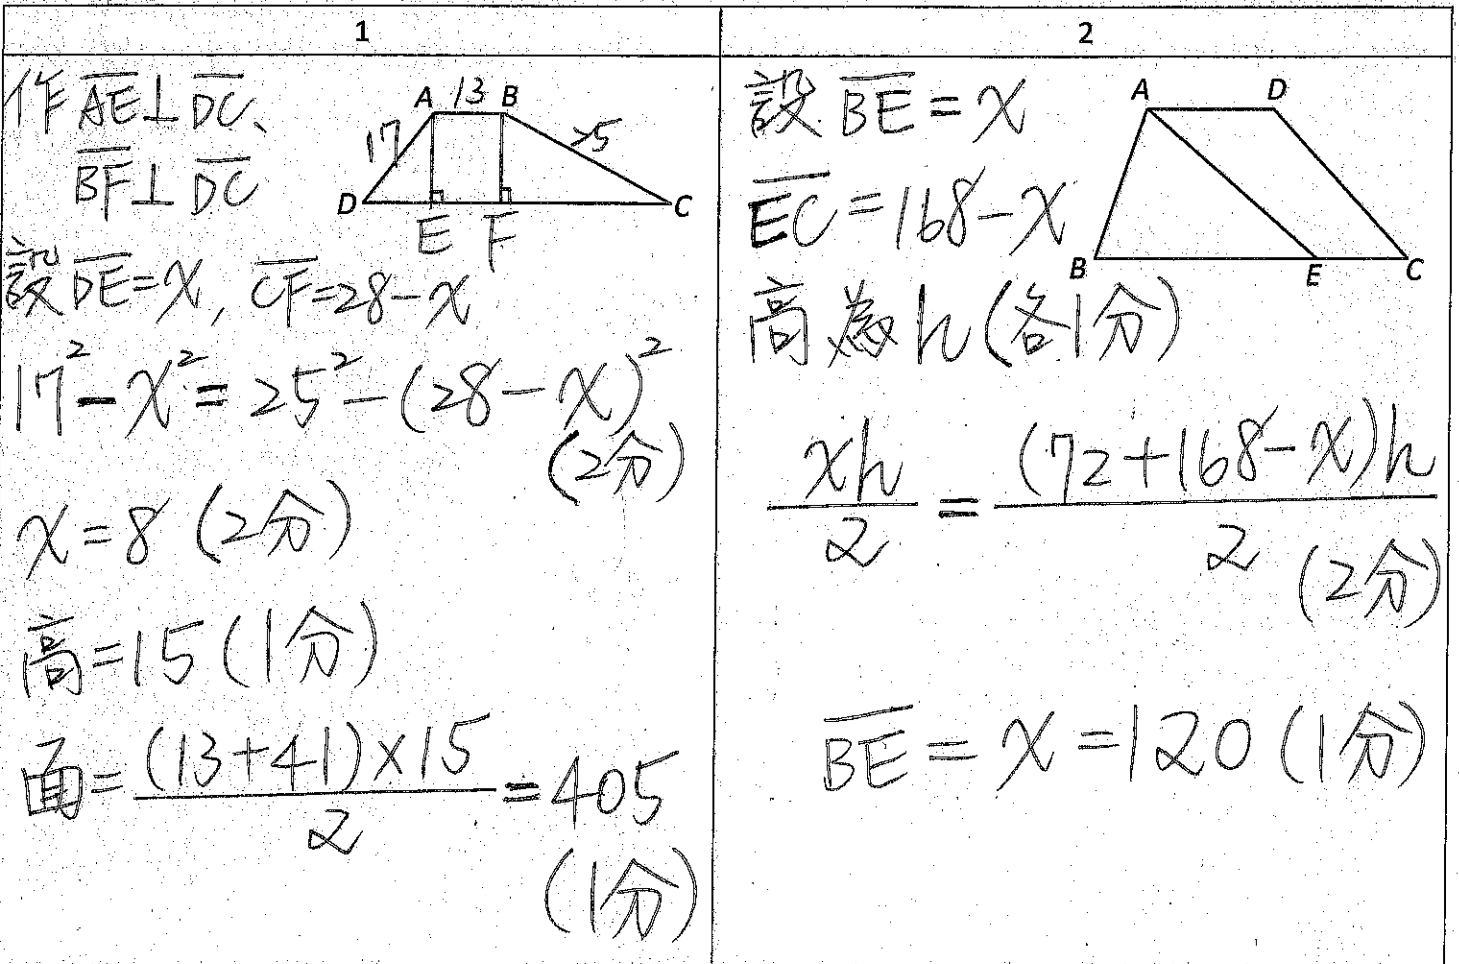 1
作 AE⊥DC、
BF⊥DC
A 13 B
17
25
D
C
E F
設 DE=x, CF=28-x
17²-x²=25²-(28-x)²
(2分)
x=8 (2分)
高=15 (1分)
面=(13+41)×15/2=405
(1分)
2
設 BE=x
A D
EC=168-x
B E C
高為h(各1分)
xh/2=(72+168-x)h/2
(2分)
BE=x=120 (1分)